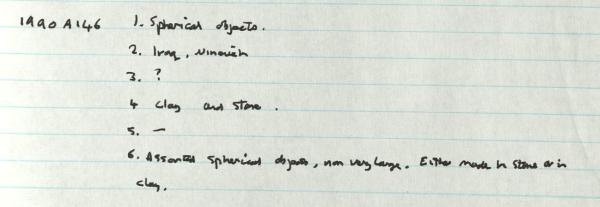 1990 A146 1. Spherical objects.
2. Iraq, Nineveh
3. ?
4 Clay and stone.
5. —
6. Assorted spherical objects, non very large. Either made in stone or in
clay.